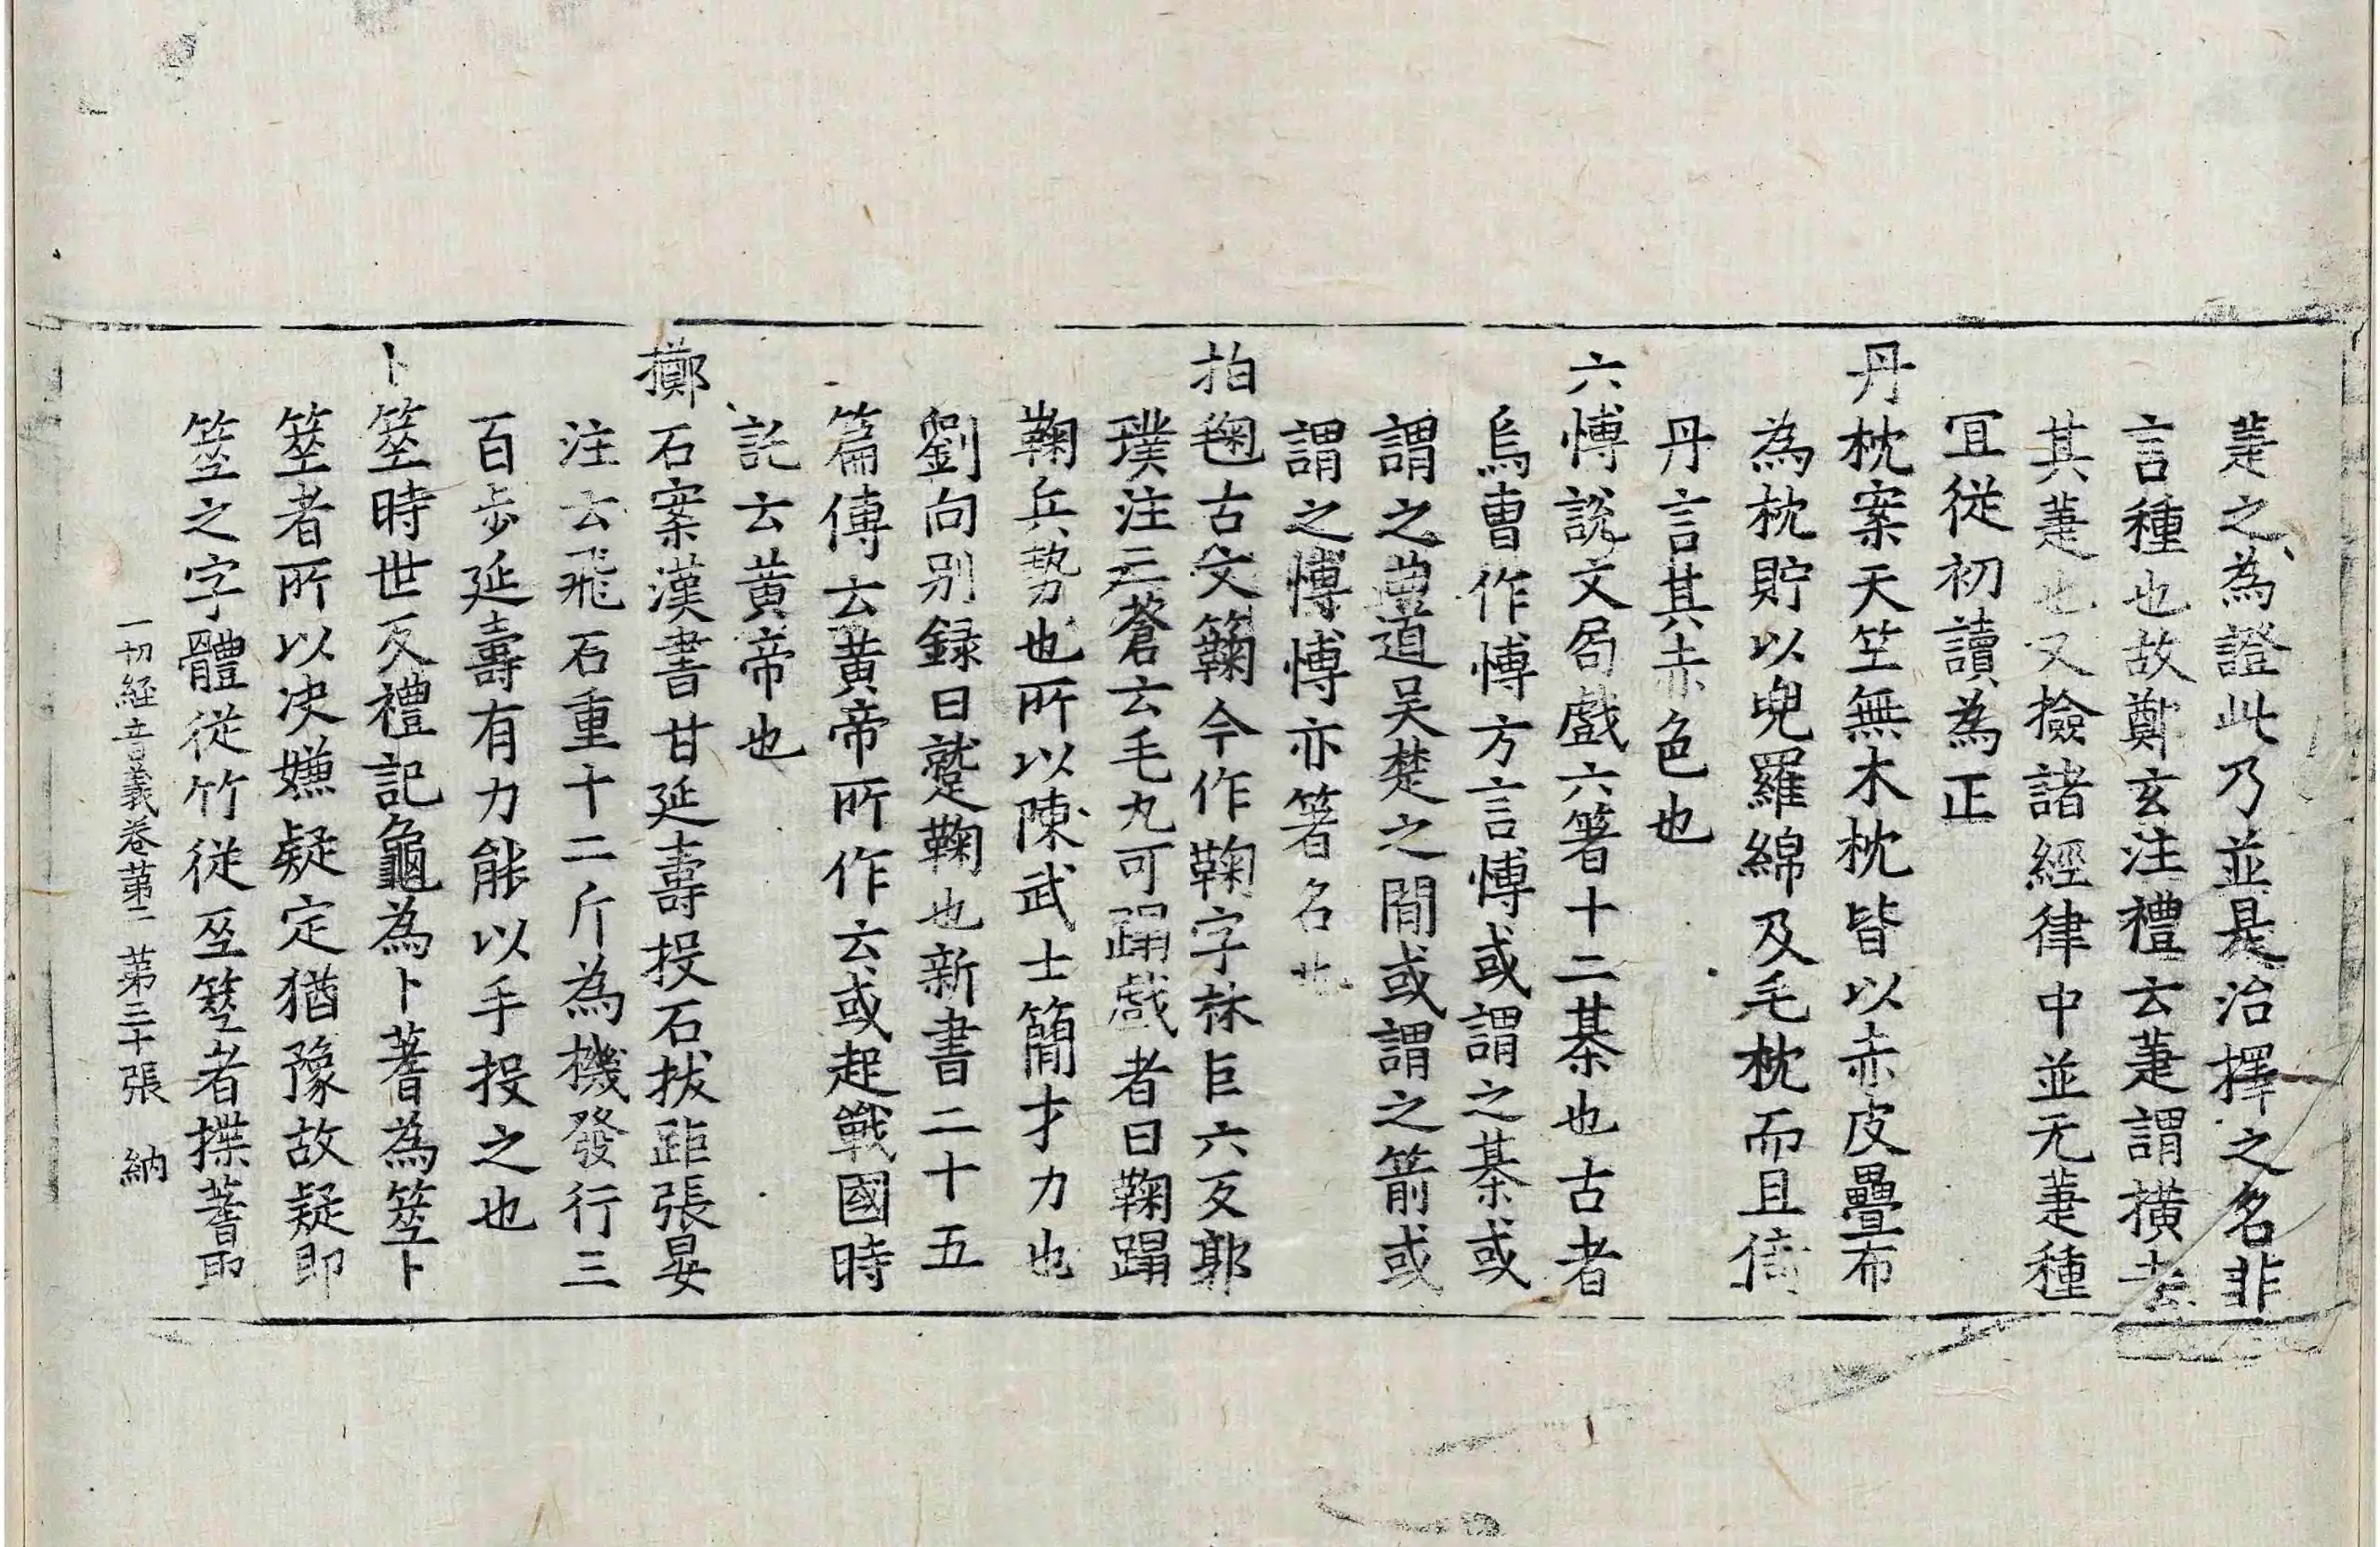 萐之為證此乃並是治擇之名非
言種也故鄭玄注禮云萐謂橫去
其萐也又撿諸經律中並无萐種
冝從初讀為正
丹枕案天竺無木枕皆以赤皮疊布
為枕貯以兜羅綿及毛枕而且倚
丹言其赤色也
六愽說文局戲六箸十二棊也古者
烏曹作愽方言愽或謂之棊或
謂之曲道吴楚之間或謂之箭或
謂之愽愽亦箸名也
拍毱古文䪇今作鞠字林巨六反郭
璞注三蒼云毛丸可蹋戲者曰鞠蹋
鞠兵勢也所以陳武士簡才力也
劉向别録曰蹵鞠也新書二十五
篇傳云黄帝所作云或起戰國時
託云黄帝也
擲石案漢書甘延壽投石拔距張晏
注云飛石重十二斤為機發行三
百步延壽有力能以手投之也
卜筮時世反禮記龜為卜蓍為筮卜
筮者所以決嫌疑定猶豫故疑即
筮之字體從竹從巫筮者揲蓍即
一切經音義卷第二 第三十張 納